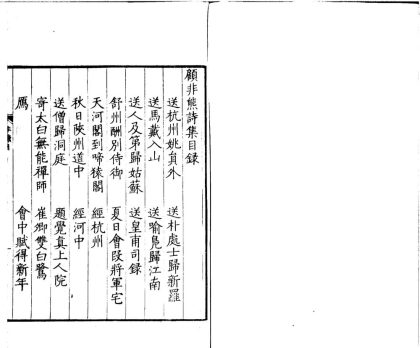 顧非熊詩集目録
送杭州姚員外
送朴處士歸新羅
送馬戴入山
送喻鳧歸江南
送人及第歸姑蘇
送皇甫司録
舒州酬別侍御
夏日會段將軍宅
天河閣到啼猿閣
經杭州
秋日陝州道中
經河中
送僧歸洞庭
題覺真上人院
寄太白無能禪師
崔卿雙白鷺
鴈
會中賦得新年